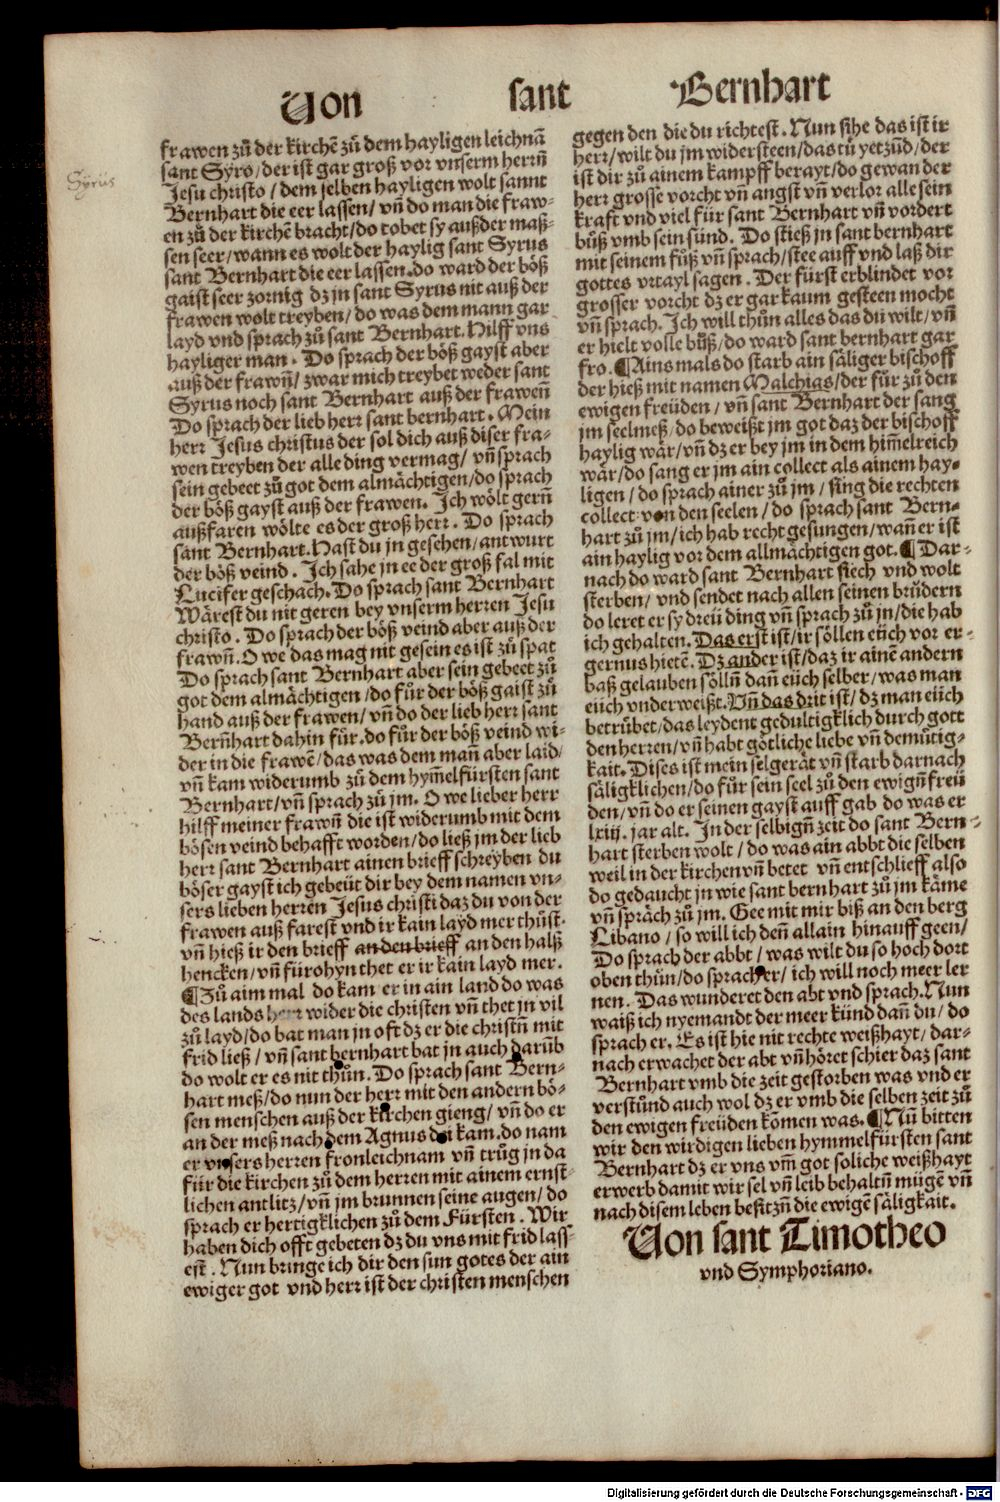 Von sant Bernhart
Syrus
frawen zů der kirchẽ zů dem hayligen leichnã
sant Syro/der ist gar groß vor vnserm herrñ
Jesu christo/dem selben hayligen wolt sannt
Bernhart die eer lassen/vñ do man die fraw-
en zů der kirchẽ bracht/do tobet sy außder maß-
sen seer/wann es wolt der haylig sant Syrus
sant Bernhart die eer lassen.do ward der böß
gaist seer zornig dz jn sant Syrus nit auß der
frawen wolt treyben/do was dem mann gar
layd vnd sprach zů sant Bernhart.Hilff vns
hayliger man. Do sprach der böß gayst aber
auß der frawñ/zwar mich treybet weder sant
Syrus noch sant Bernhart auß der fraweñ
Do sprach der lieb herr sant bernhart. Mein
herr Jesus christus der sol dich auß diser fra-
wen treyben der alle ding vermag/ vñ sprach
sein gebeet zů got dem almächtigen/do sprach
der böß gayst auß der frawen. Ich wölt gerñ
außfaren wölte es der groß herr. Do sprach
sant Bernhart.Hast du jn gesehen/antwurt
der böß veind. Ich sahe jn ee der groß fal mit
Lucifer geschach.Do sprach sant Bernhart
Wärest du nit geren bey vnserm herren Jesu
christo. Do sprach der böß veind aber auß der
frawñ.O we das mag nit gesein es ist zů spat
Do sprach sant Bernhart aber sein gebeet zů
got dem almächtigen/do fůr der böß gaist zů
hand auß der frawen/vñ do der lieb herr sant
Berñhart dahin fůr.do fůr der böß veind wi-
der in die frawẽ/das was dem mañ aber laid/
vñ kam widerumb zů dem hym̃elfürsten sant
Bernhart/vñ sprach zů jm. O we lieber herr
hilff meiner frawñ die ist widerumb mit dem
bösen veind behafft worden/do ließ jm der lieb
herr sant Bernhart ainen brieff schreyben du
böser gayst ich gebeüt dir bey dem namen vn-
sers lieben herren Jesus christi daz du von der
frawen auß farest vnd ir kain layd mer thůst.
vñ hieß ir den brieff an den brieff an den halß
hencken/vñ fürohyn thet er ir kain layd mer.
¶Zů aim mal do kam er in ain land do was
des lands herr wider die christen vñ thet jn vil
zů layd/do bat man jn oft dz er die christñ mit
frid ließ/vñ sant bernhart bat jn auch darũb
do wolt er es nit thůn.Do sprach sant Bern-
hart meß/do nun der herr mit den andern bö-
sen menschen auß der kirchen gieng/ vñ do er
an der meß nach dem Agnus dei kam.do nam
er vnsers herren fronleichnam vñ trůg jn da
für die kirchen zů dem herren mit ainem ernst-
lichen antlitz/vñ jm brunnen seine augen/do
sprach er hertigklichen zů dem Fürsten. Wir
haben dich offt gebeten dz du vns mit frid lass-
est. Nun bringe ich dir den sun gotes der ain
ewiger got vnd herr ist der christen menschen
gegen den die du richtest.Nun sihe das ist ir
herr/wilt du jm widersteen/das tů yetzũd/der
ist dir zů ainem kampff berayt/do gewan der
herr grosse vorcht vñ angst vñ verlor alle sein
kraft vnd viel für sant Bernhart vñ vordert
bůß vmb sein sünd. Do stieß jn sant bernhart
mit seinem fůß vñ sprach/stee auff vnd laß dir
gottes vrtayl sagen. Der fürst erblindet vor
grosser vorcht dz er gar kaum gesteen mocht
vñ sprach. Ich will thůn alles das du wilt/vñ
er hielt volle bůß/do ward sant bernhart gar
fro.¶Ains mals do starb ain säliger bischoff
der hieß mit namen Malchias/der fůr zů den
ewigen freüden/ vñ sant Bernhart der sang
jm seelmeß/do beweißt jm got daz der bischoff
haylig wär/vñ dz er bey jm in dem him̃elreich
wär/do sang er jm ain collect als ainem hay-
ligen/do sprach ainer zů jm/sing die rechten
collect von den seelen/do sprach sant Bern-
hart zů jm/ich hab recht gesungen/wañ er ist
ain haylig vor dem allmächtigen got.¶Dar-
nach do ward sant Bernhart siech vnd wolt
sterben/vnd sendet nach allen seinen brůdern
do leret er sy dreü ding vñ sprach zů jn/die hab
ich gehalten.Das erst ist/ir söllen eüch vor er-
gernus hietẽ.Dz ander ist/daz ir ainẽ andern
baß gelauben söllñ dañ eüch selber/was man
eüch vnderweißt.Vñ das drit ist/dz man eüch
betrübet/das leydent gedultigklich durch gott
den herren/vñ habt götliche liebe vñ demütig-
kait.Dises ist mein selgerät vñ starb darnach
säligklichen/do fůr sein seel zů den ewigñ freü
den/vñ do er seinen gayst auff gab do was er
lxiij.jar alt. In der selbigñ zeit do sant Bern-
hart sterben wolt/do was ain abbt die selben
weil in der kirchen vñ betet vñ entschlieff also
do gedaucht jn wie sant bernhart zů jm käme
vñ spräch zů jm. Gee mit mir biß an den berg
Libano/so will ich deñ allain hinauff geen/
Do sprach der abbt/was wilt du so hoch dort
oben thůn/do sprach er/ich will noch meer ler
nen. Das wunderet den abt vnd sprach.Nun
waiß ich nyemandt der meer künd dañ du/do
sprach er. Es ist hie nit rechte weißhayt/dar-
nach erwachet der abt vñ höret schier daz sant
Bernhart vmb die zeit gestorben was vnd er
verstůnd auch wol dz er vmb die selben zeit zů
den ewigen freüden kõmen was.¶Nũ bitten
wir den wirdigen lieben hymmelfürsten sant
Bernhart dz er vns vm̃ got soliche weißhayt
erwerb damit wir sel vñ leib behaltñ mügẽ vñ
nach disem leben besitzñ die ewigẽ säligkait.
Von sant Timotheo
vnd Symphoriano.
Digitalisierung gefördert durch die Deutsche Forschungsgemeinschaft - DFG